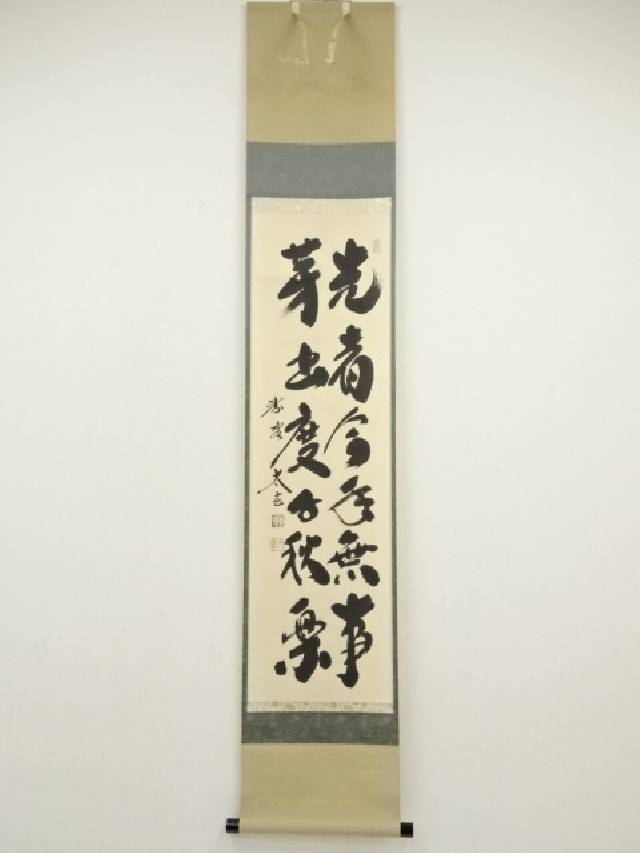 先者今年無事
芽出度千秋楽